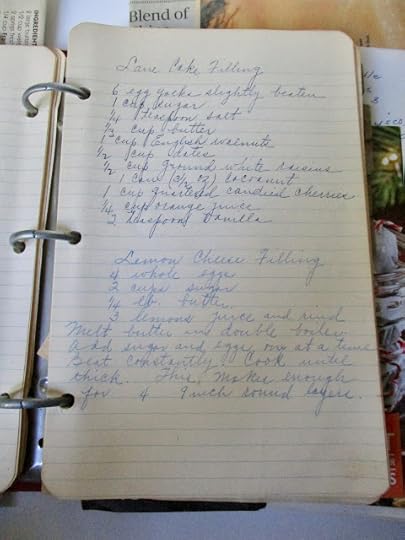 INGREDIENTS
Blend of
Lane Cake Filling
6 egg yocks slightly beaten
1 cup sugar
1/4 teaspoon salt
1/3 cup butter
1 cup English walnuts
1/2 cup dates
1/2 cup ground white raisins
1 can (3 1/2 oz) cocoanut
1 cup quartered candied cherries
1/4 cup orange juice
2 teaspoon Vanilla
Lemon Cheese Filling
4 whole eggs
2 cups sugar
1/4 lb. butter
3 lemons juice and rind
Melt butter in double boiler
Add sugar and eggs one at a time
Beat constantly. Cook until
thick. This makes enough
for 4 9 inch round layers.